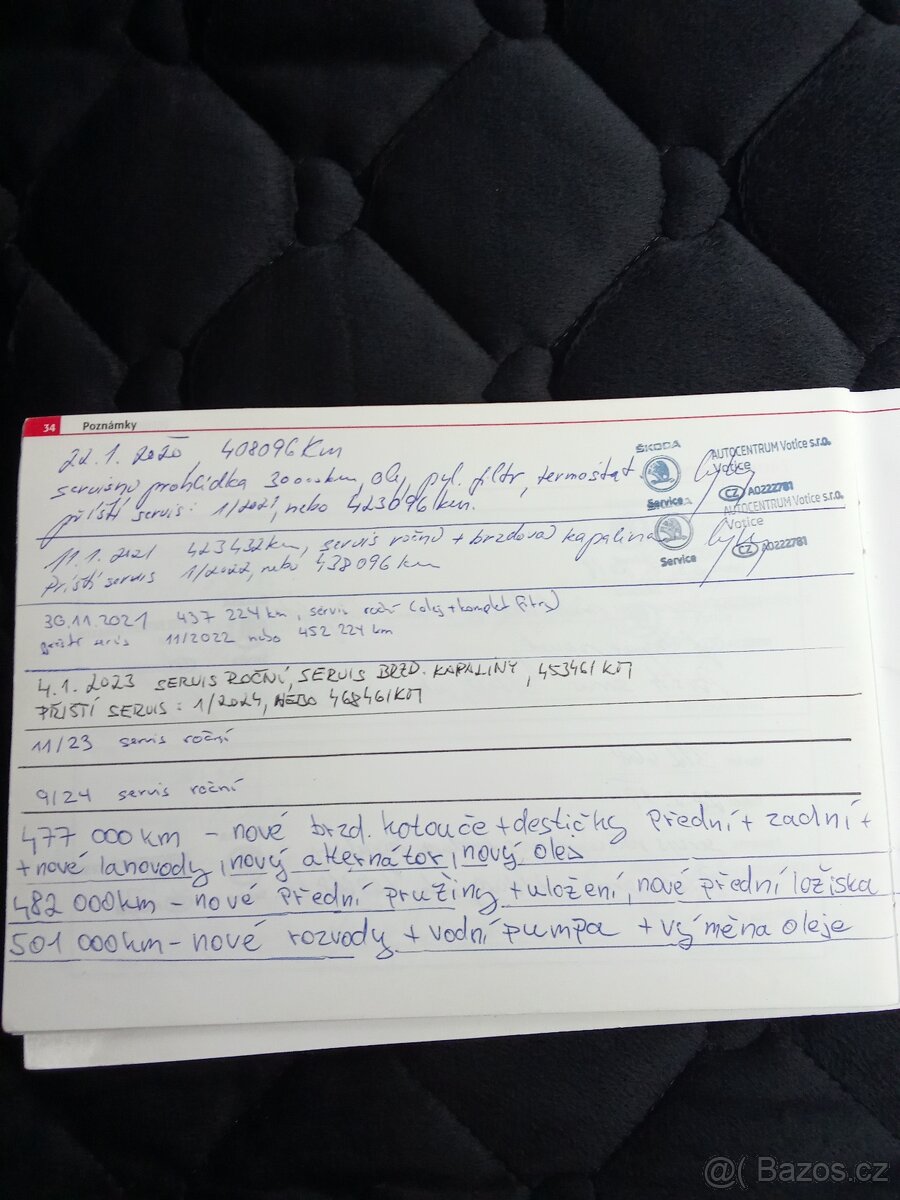 34 Poznámky
22.1. 2020, 408096 Km
servisní prohlídka 30000km, olej, pyl. filtr, termostat
příští servis: 1/2021, nebo 423096 km.
ŠKODA
Service
AUTOCENTRUM Votice s.r.o.
Votice
CZ A0222781
11.1. 2021 423432km, servis roční + brzdová kapalina
Příští servis 1/2022, nebo 438096 km
Service
AUTOCENTRUM Votice s.r.o.
Votice
CZ A0222781
30.11.2021 437 224 km, servis roční (olej + komplet filtry)
příští servis 11/2022 nebo 452 224 km
4.1. 2023 SERVIS ROČNÍ, SERVIS BRZD. KAPALINY, 453461 KM
PŘÍŠTÍ SERVIS: 1/2024, NEBO 468461 KM
11/23 servis roční
9/24 servis roční
477 000km - nové brzd. kotouče + destičky přední + zadní +
+ nové lanovody, nový alternátor, nový olej
482 000km - nové přední pružiny + uložení, nové přední ložiska
501 000km - nové rozvody + vodní pumpa + výměna oleje
@( Bazos.cz